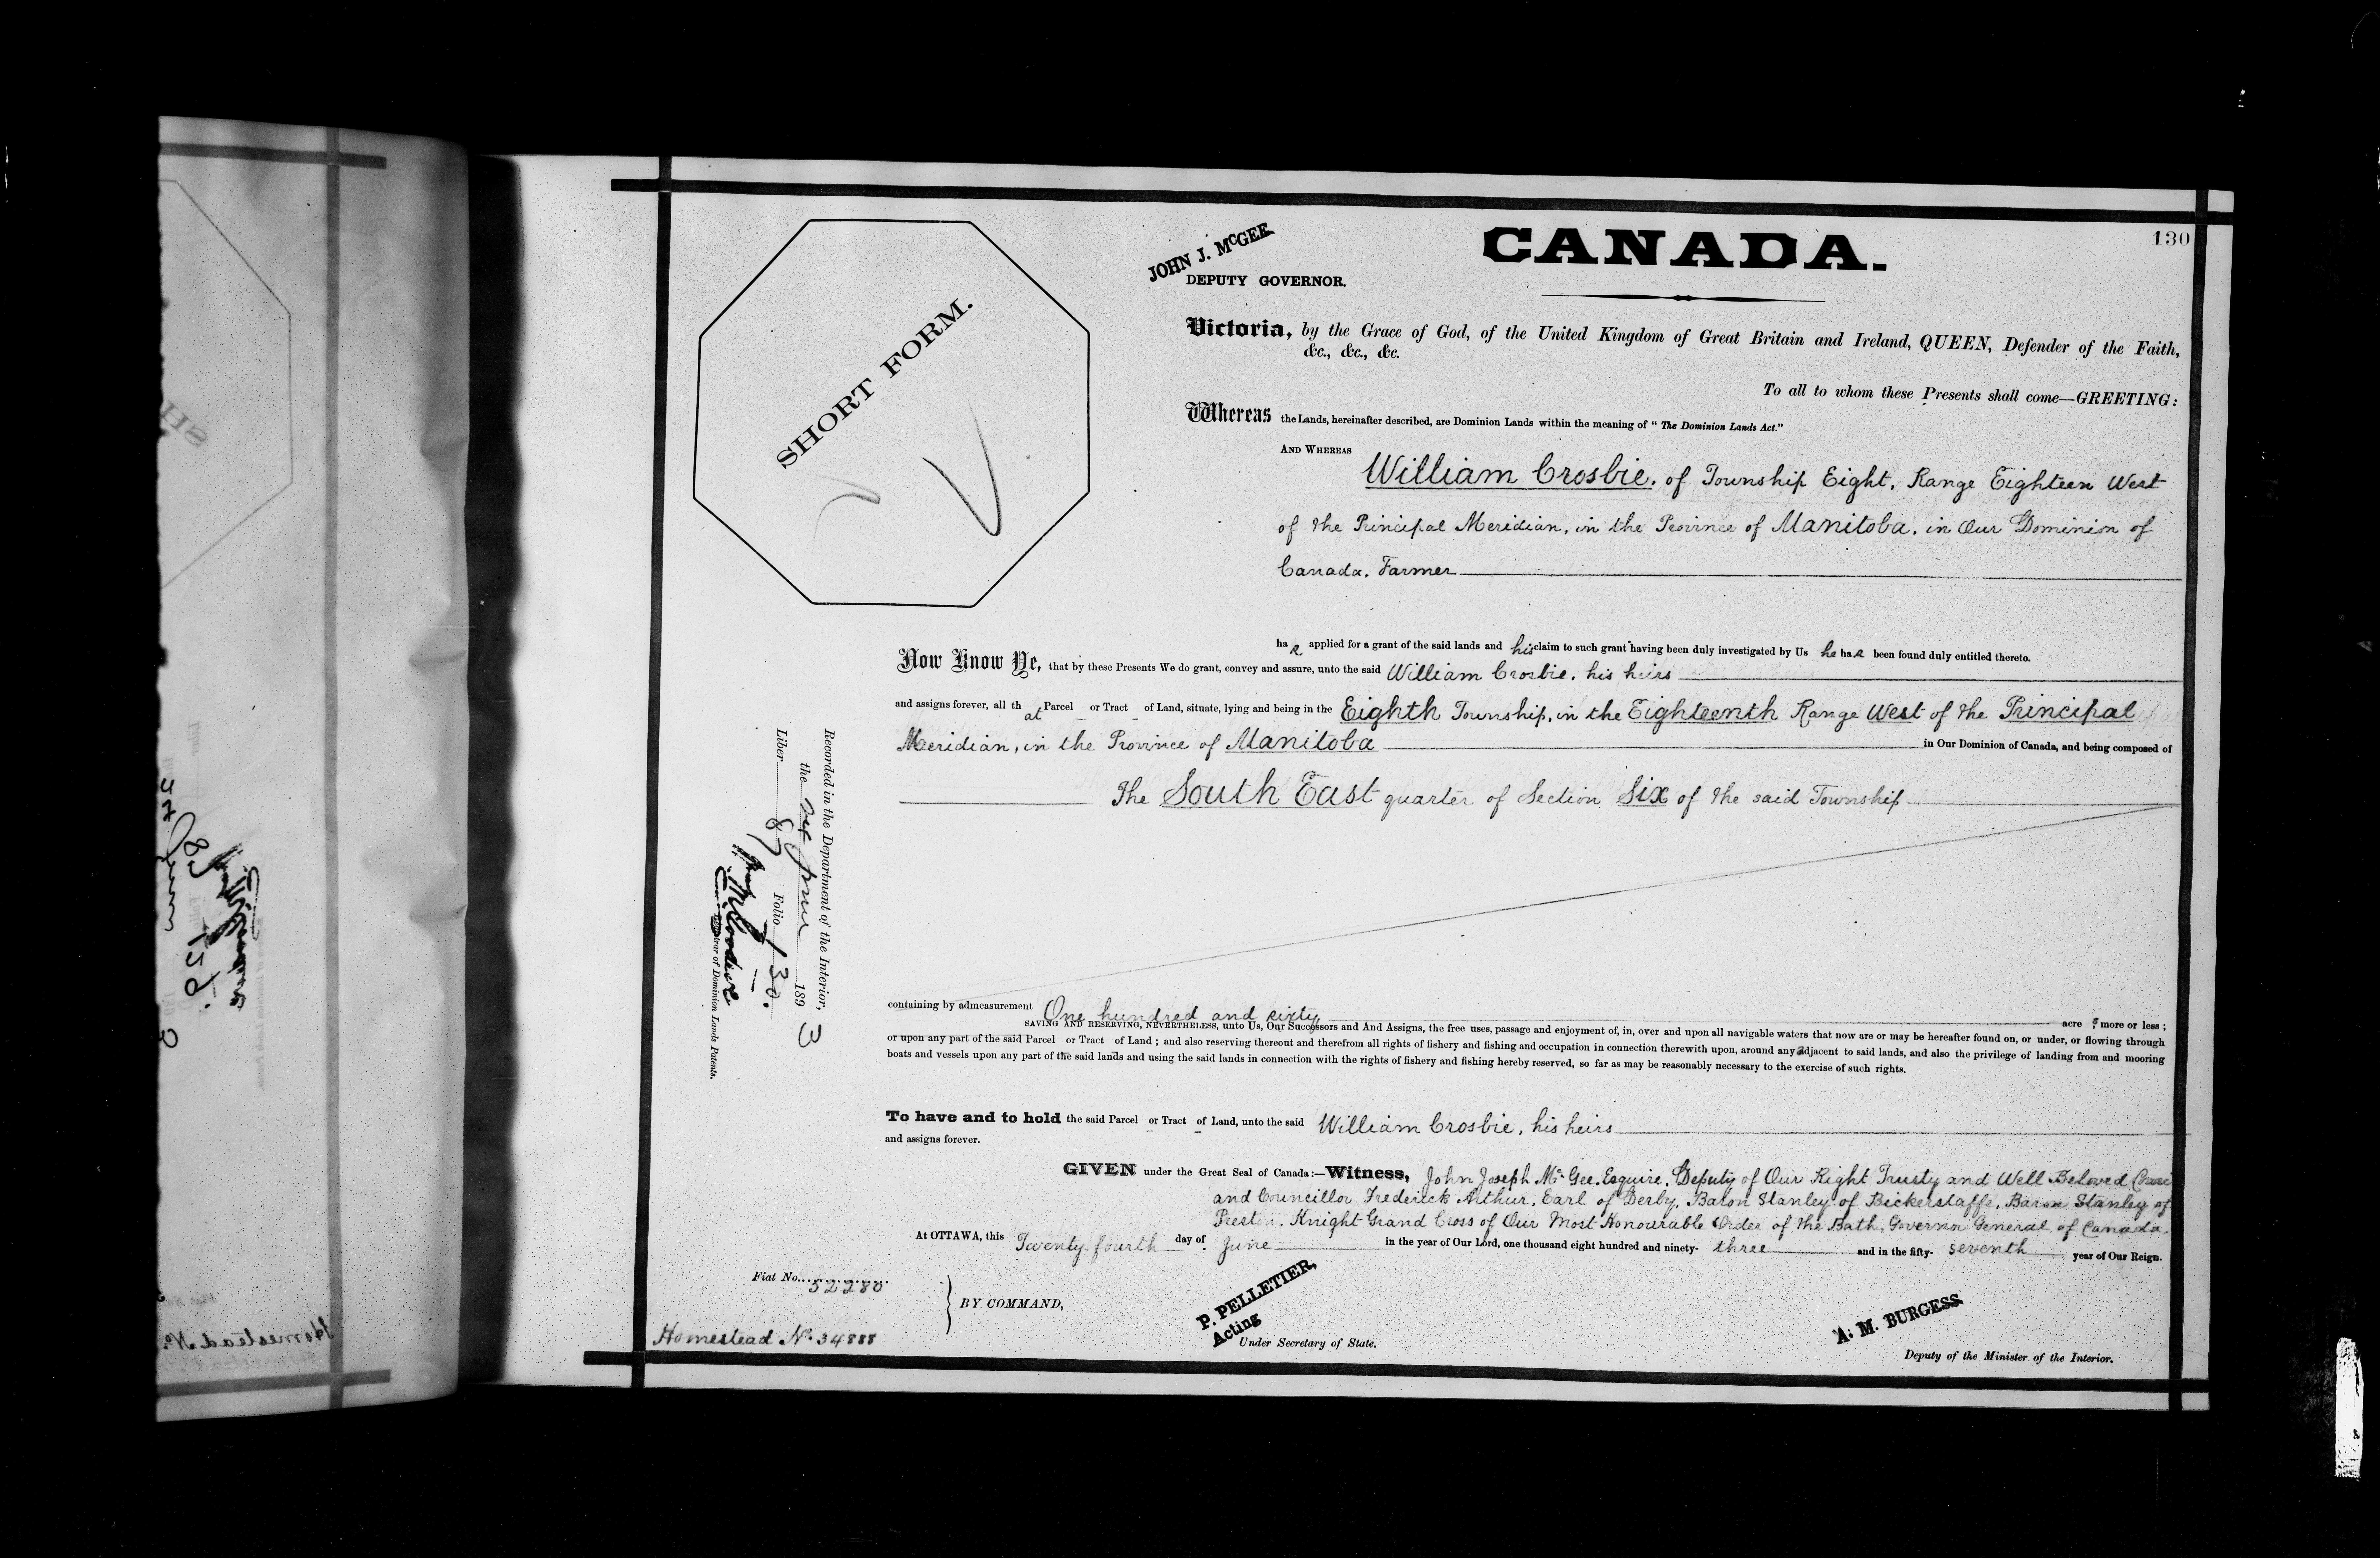 130
JOHN J. McGEE
DEPUTY GOVERNOR.
CANADA.
SHORT FORM.
Victoria, by the Grace of God, of the United Kingdom of Great Britain and Ireland, QUEEN, Defender of the Faith,
&c., &c., &c.
To all to whom these Presents shall come—GREETING:
Whereas the Lands, hereinafter described, are Dominion Lands within the meaning of "The Dominion Lands Act."
AND WHEREAS
William Crosbie, of Township Eight, Range Eighteen West
of the Principal Meridian, in the Province of Manitoba, in Our Dominion of
Canada, Farmer
has applied for a grant of the said lands and his claim to such grant having been duly investigated by Us he has been found duly entitled thereto.
Now Know Ye, that by these Presents We do grant, convey and assure, unto the said William Crosbie, his heirs
and assigns forever, all that Parcel or Tract of Land, situate, lying and being in the Eighth Township, in the Eighteenth Range West of the Principal
Meridian, in the Province of Manitoba in Our Dominion of Canada, and being composed of
The South East quarter of Section Six of the said Township
containing by admeasurement One hundred and sixty acres more or less;
SAVING AND RESERVING, NEVERTHELESS, unto Us, Our Successors and And Assigns, the free uses, passage and enjoyment of, in, over and upon all navigable waters that now are or may be hereafter found on, or under, or flowing through
or upon any part of the said Parcel or Tract of Land; and also reserving thereout and therefrom all rights of fishery and fishing and occupation in connection therewith upon, around any adjacent to said lands, and also the privilege of landing from and mooring
boats and vessels upon any part of the said lands and using the said lands in connection with the rights of fishery and fishing hereby reserved, so far as may be reasonably necessary to the exercise of such rights.
To have and to hold the said Parcel or Tract of Land, unto the said William Crosbie, his heirs
and assigns forever.
GIVEN under the Great Seal of Canada:—Witness, John Joseph McGee, Esquire, Deputy of Our Right Trusty and Well Beloved
and Councillor Frederick Arthur, Earl of Derby, Baron Stanley of Bickerstaffe, Baron Stanley of
Preston, Knight Grand Cross of Our Most Honourable Order of the Bath, Governor General of Canada.
At OTTAWA, this Twenty-fourth day of June in the year of Our Lord, one thousand eight hundred and ninety-three and in the fifty-seventh year of Our Reign.
Fiat No. 52280
BY COMMAND,
P. PELLETIER,
Acting
Under Secretary of State.
A. M. BURGESS
Deputy of the Minister of the Interior.
Homestead No. 34888
Recorded in the Department of the Interior,
the June 1893
Liber 87 Folio 130.
Registrar of Dominion Lands Patents.